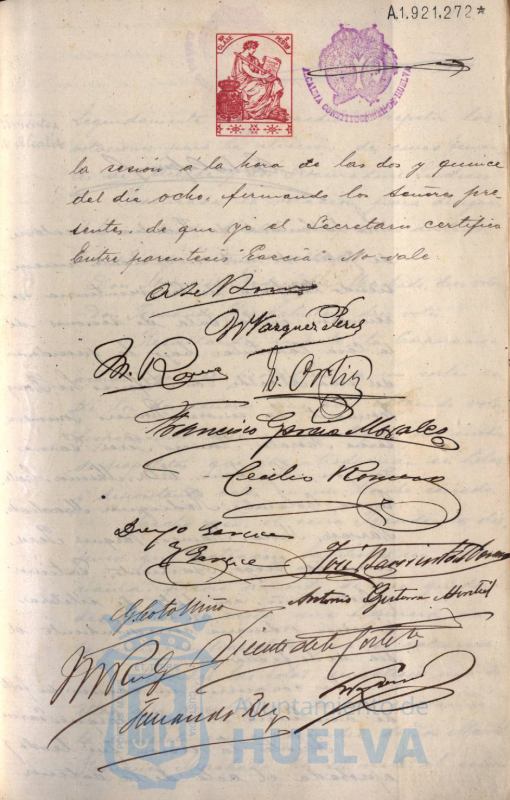 A.1.921.272*
CLASE
ALCALDIA CONSTITUCIONAL DE HUELVA
la sesión á la hora de las dos y quince
del día ocho, firmando los señores pre
sentes, de que yo el Secretario certifico
Entre parentesis "Garcia" No vale.
M Vazquez Perez
M. Rom
V. Ortiz
Francisco Garcia Morales
Cecilio Romero
Diego Garcia
y Garcia
José Barrientos
G Soto Niño
Antonio
Vicente de la Corte
Fernando Rey
Ayuntamiento de
HUELVA